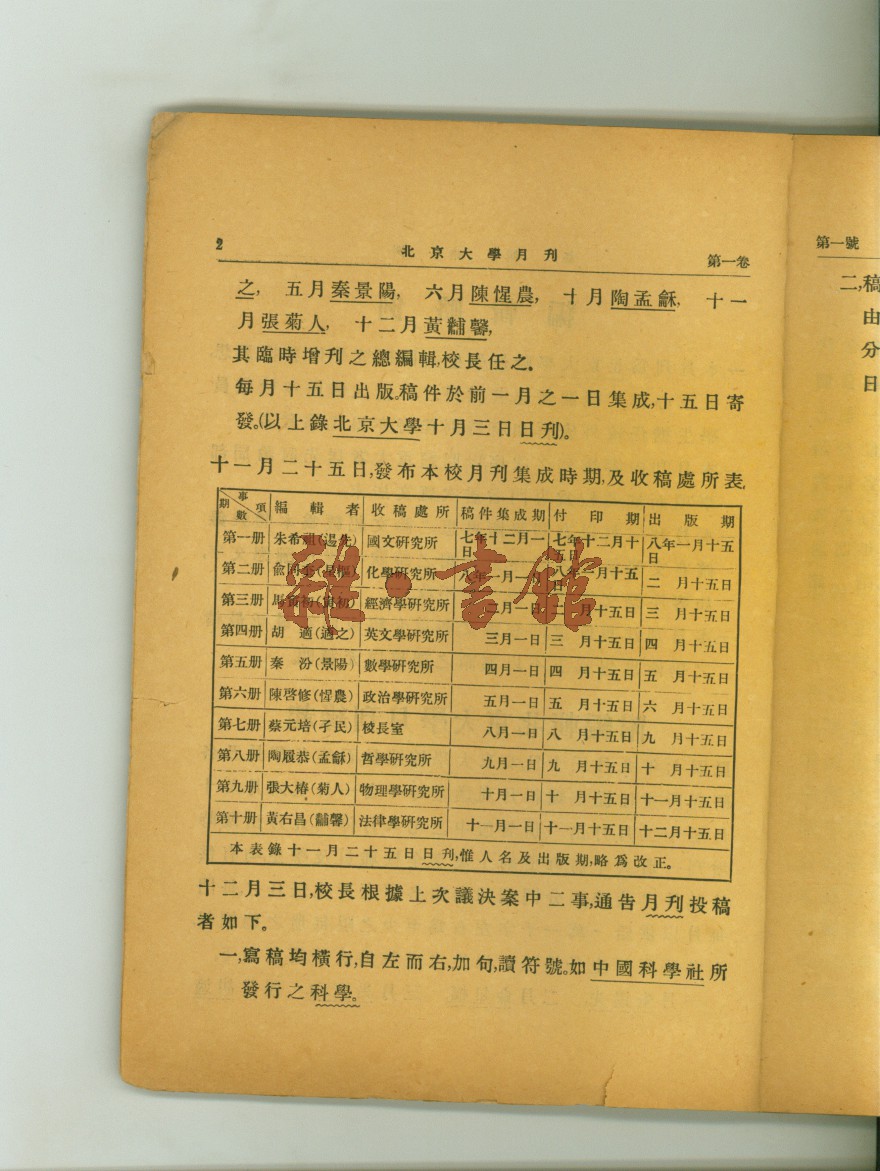 2
北京大學月刊
第一卷
之, 五月秦景陽, 六月陳惺農, 十月陶孟龢, 十一
月張菊人, 十二月黃黼馨,
其臨時增刊之總編輯,校長任之.
每月十五日出版.稿件於前一月之一日集成,十五日寄
發.(以上錄北京大學十月三日日刊).
十一月二十五日,發布本校月刊集成時期,及收稿處所表.
期數 事項 編輯者 收稿處所 稿件集成期 付印期 出版期
第一册 朱希祖(逷先) 國文研究所 七年十二月一日 七年十二月十五日 八年一月十五日
第二册 俞同奎(星樞) 化學研究所 八年一月一日 八年一月十五日 二月十五日
第三册 馬寅初(寅初) 經濟學研究所 二月一日 二月十五日 三月十五日
第四册 胡適(適之) 英文學研究所 三月一日 三月十五日 四月十五日
第五册 秦汾(景陽) 數學研究所 四月一日 四月十五日 五月十五日
第六册 陳啓修(惺農) 政治學研究所 五月一日 五月十五日 六月十五日
第七册 蔡元培(孑民) 校長室 八月一日 八月十五日 九月十五日
第八册 陶履恭(孟龢) 哲學研究所 九月一日 九月十五日 十月十五日
第九册 張大椿(菊人) 物理學研究所 十月一日 十月十五日 十一月十五日
第十册 黃右昌(黼馨) 法律學研究所 十一月一日 十一月十五日 十二月十五日
本表錄十一月二十五日日刊,惟人名及出版期,略爲改正.
十二月三日,校長根據上次議決案中二事,通告月刊投稿
者如下.
一,寫稿均橫行,自左而右,加句,讀符號.如中國科學社所
發行之科學.
第一號
二,稿
由
分
日
雜·書館